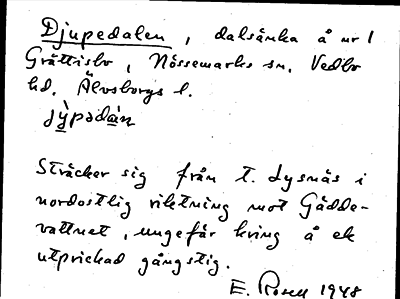 Djupedalen, dalsänka å nr 1
Grättislo, Nössemarks sn, Vedbo
hd. Älvsborgs l.
jỳpədàn
Sträcker sig från t. Lysnäs i
nordostlig riktning mot Gädde-
vattnet, ungefär kring å ek
utprickad gångstig.
E. Rosell 1948